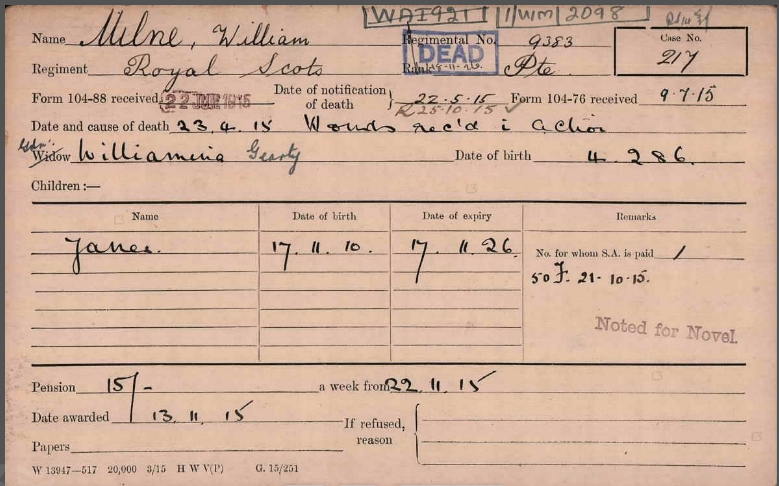 WAI921 1/WM/2098
Name Milne, William Regimental No. 9383 Case No.
217
DEAD
Regiment Royal Scots Rank Pte
Form 104-88 received 22 1915 Date of notification of death } 22.5.15 Form 104-76 received 9.7.15
25.10.15 ✓
Date and cause of death 23.4.15 Wounds rec'd i action
Widow Williamina Date of birth 4.2.86.
Children:—
Name Date of birth Date of expiry Remarks
17.11.10. 17.11.26. No. for whom S.A. is paid 1
21-10-15.
Noted for Novel.
Pension 15/- a week from 22.11.15
Date awarded 13.11.15 If refused, reason {
Papers
W 13947—517 20,000 3/15 H W V(P) G. 15/251